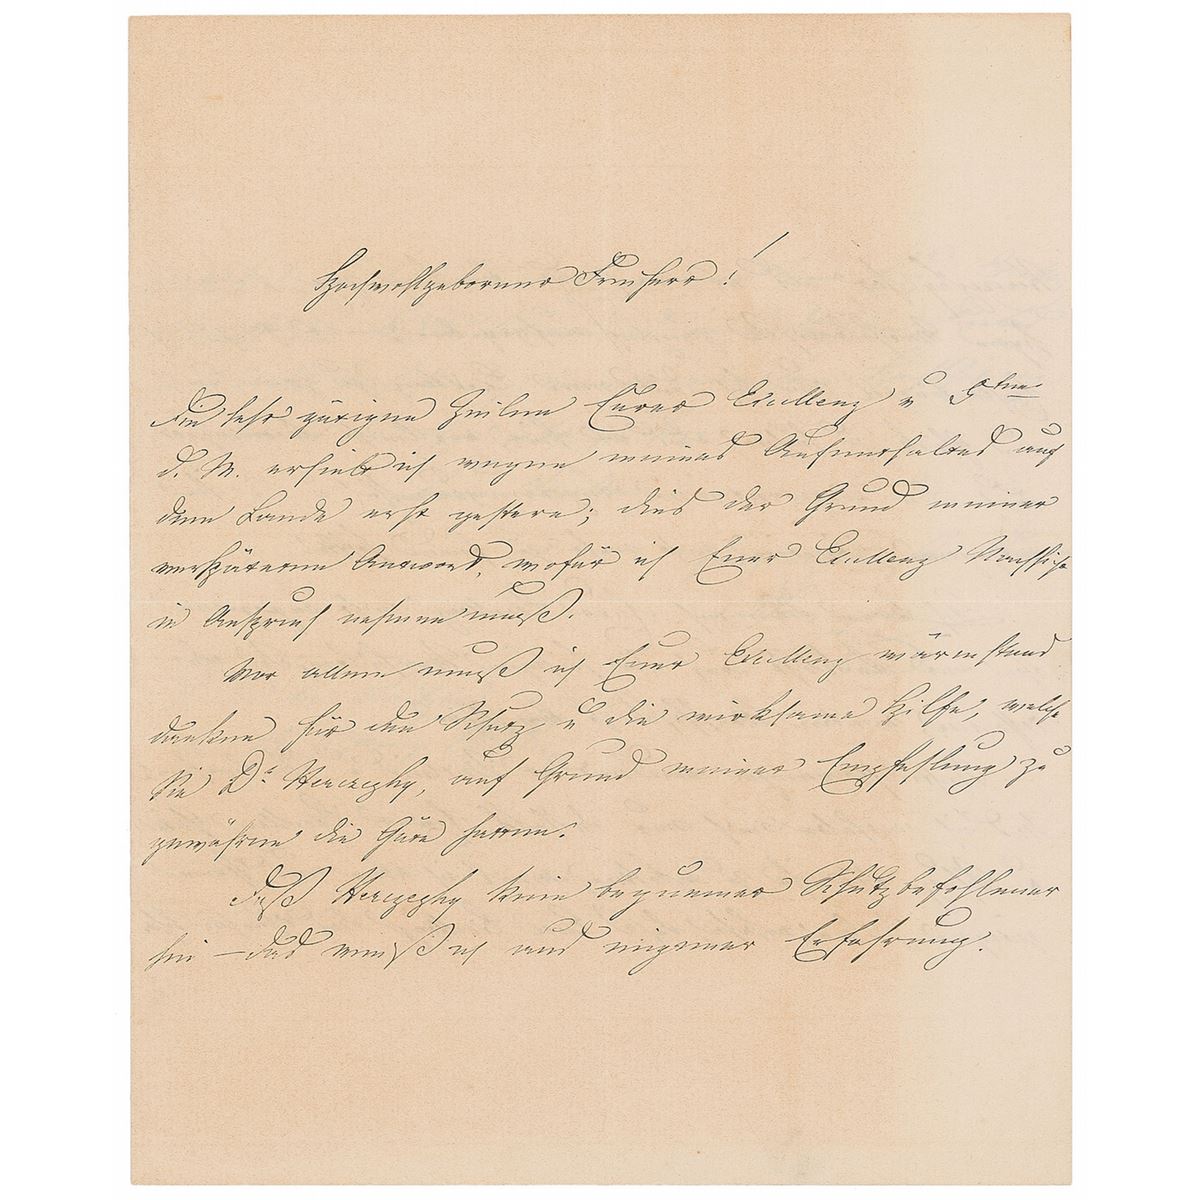 Hochwohlgeborener Freiherr!
Die sehr gütigen Zeilen Eurer Excellenz v
d. M. erhielt ich wegen meines Aufenthaltes auf
dem Lande erst gestern; dies der Grund meiner
verspäteten Antwort, wofür ich Euer Excellenz Nachsicht
in Anspruch nehmen muß.
Vor allem muß ich Euer Excellenz wärmstens
danken für den Schutz u die wirksame Hilfe, welche
Sie Dr Herczeghy, auf Grund meiner Empfehlung zu
gewähren die Güte hatten.
Daß Herczeghy kein bequemer Schutzbefohlener
sei – das weiß ich aus eigener Erfahrung.